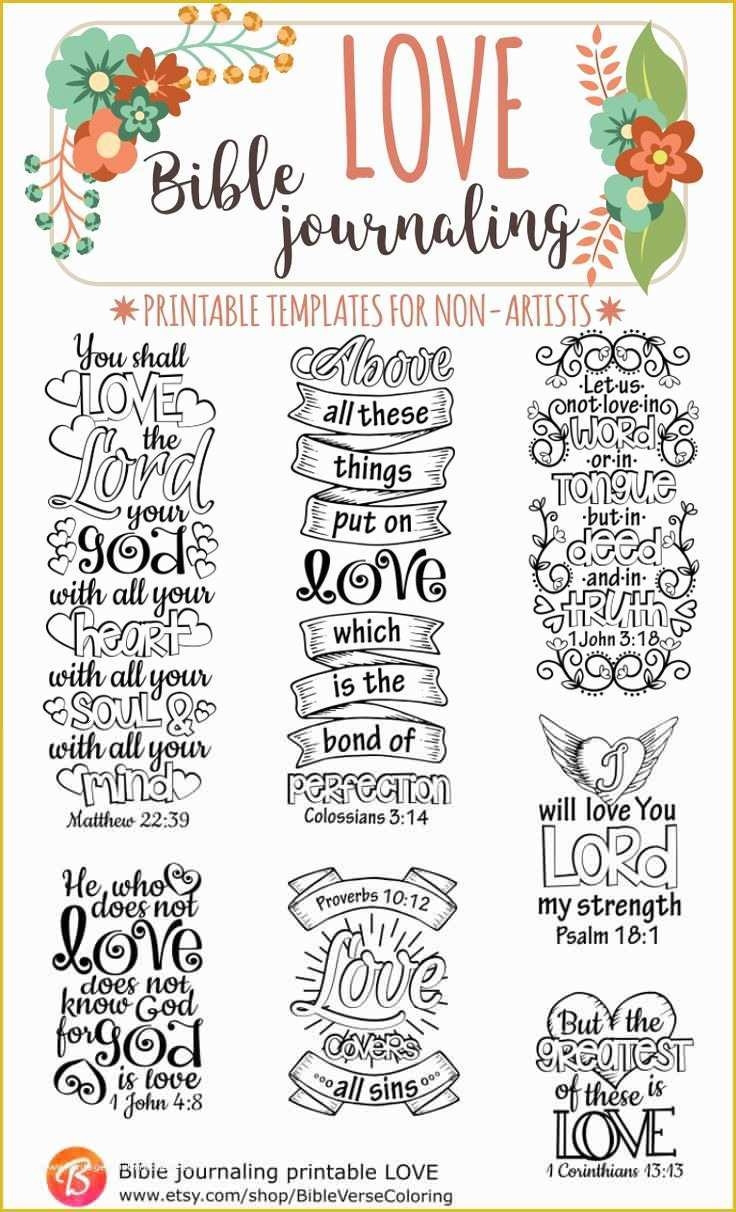 LOVE
Bible
journaling
PRINTABLE TEMPLATES FOR NON-ARTISTS
You shall
LOVE
the
Lord
your
God
with all your
heart
with all your
SOUL &
with all your
mind
Matthew 22:39
Above
all these
things
put on
LOVE
which
is the
bond of
PERFECTION
Colossians 3:14
Let us
not·love·in
WORD
·or·in·
TONGUE
·but·in·
deed
·and·in·
TRUTH
1 John 3:18
I
will love You
LORD
my strength
Psalm 18:1
He who
does not
LOVE
does not
know God
for GOD
is love
1 John 4:8
Proverbs 10:12
Love
COVERS
all sins
But the
GREATEST
of these is
LOVE
1 Corinthians 13:13
B
Bible journaling printable LOVE
www.etsy.com/shop/BibleVerseColoring